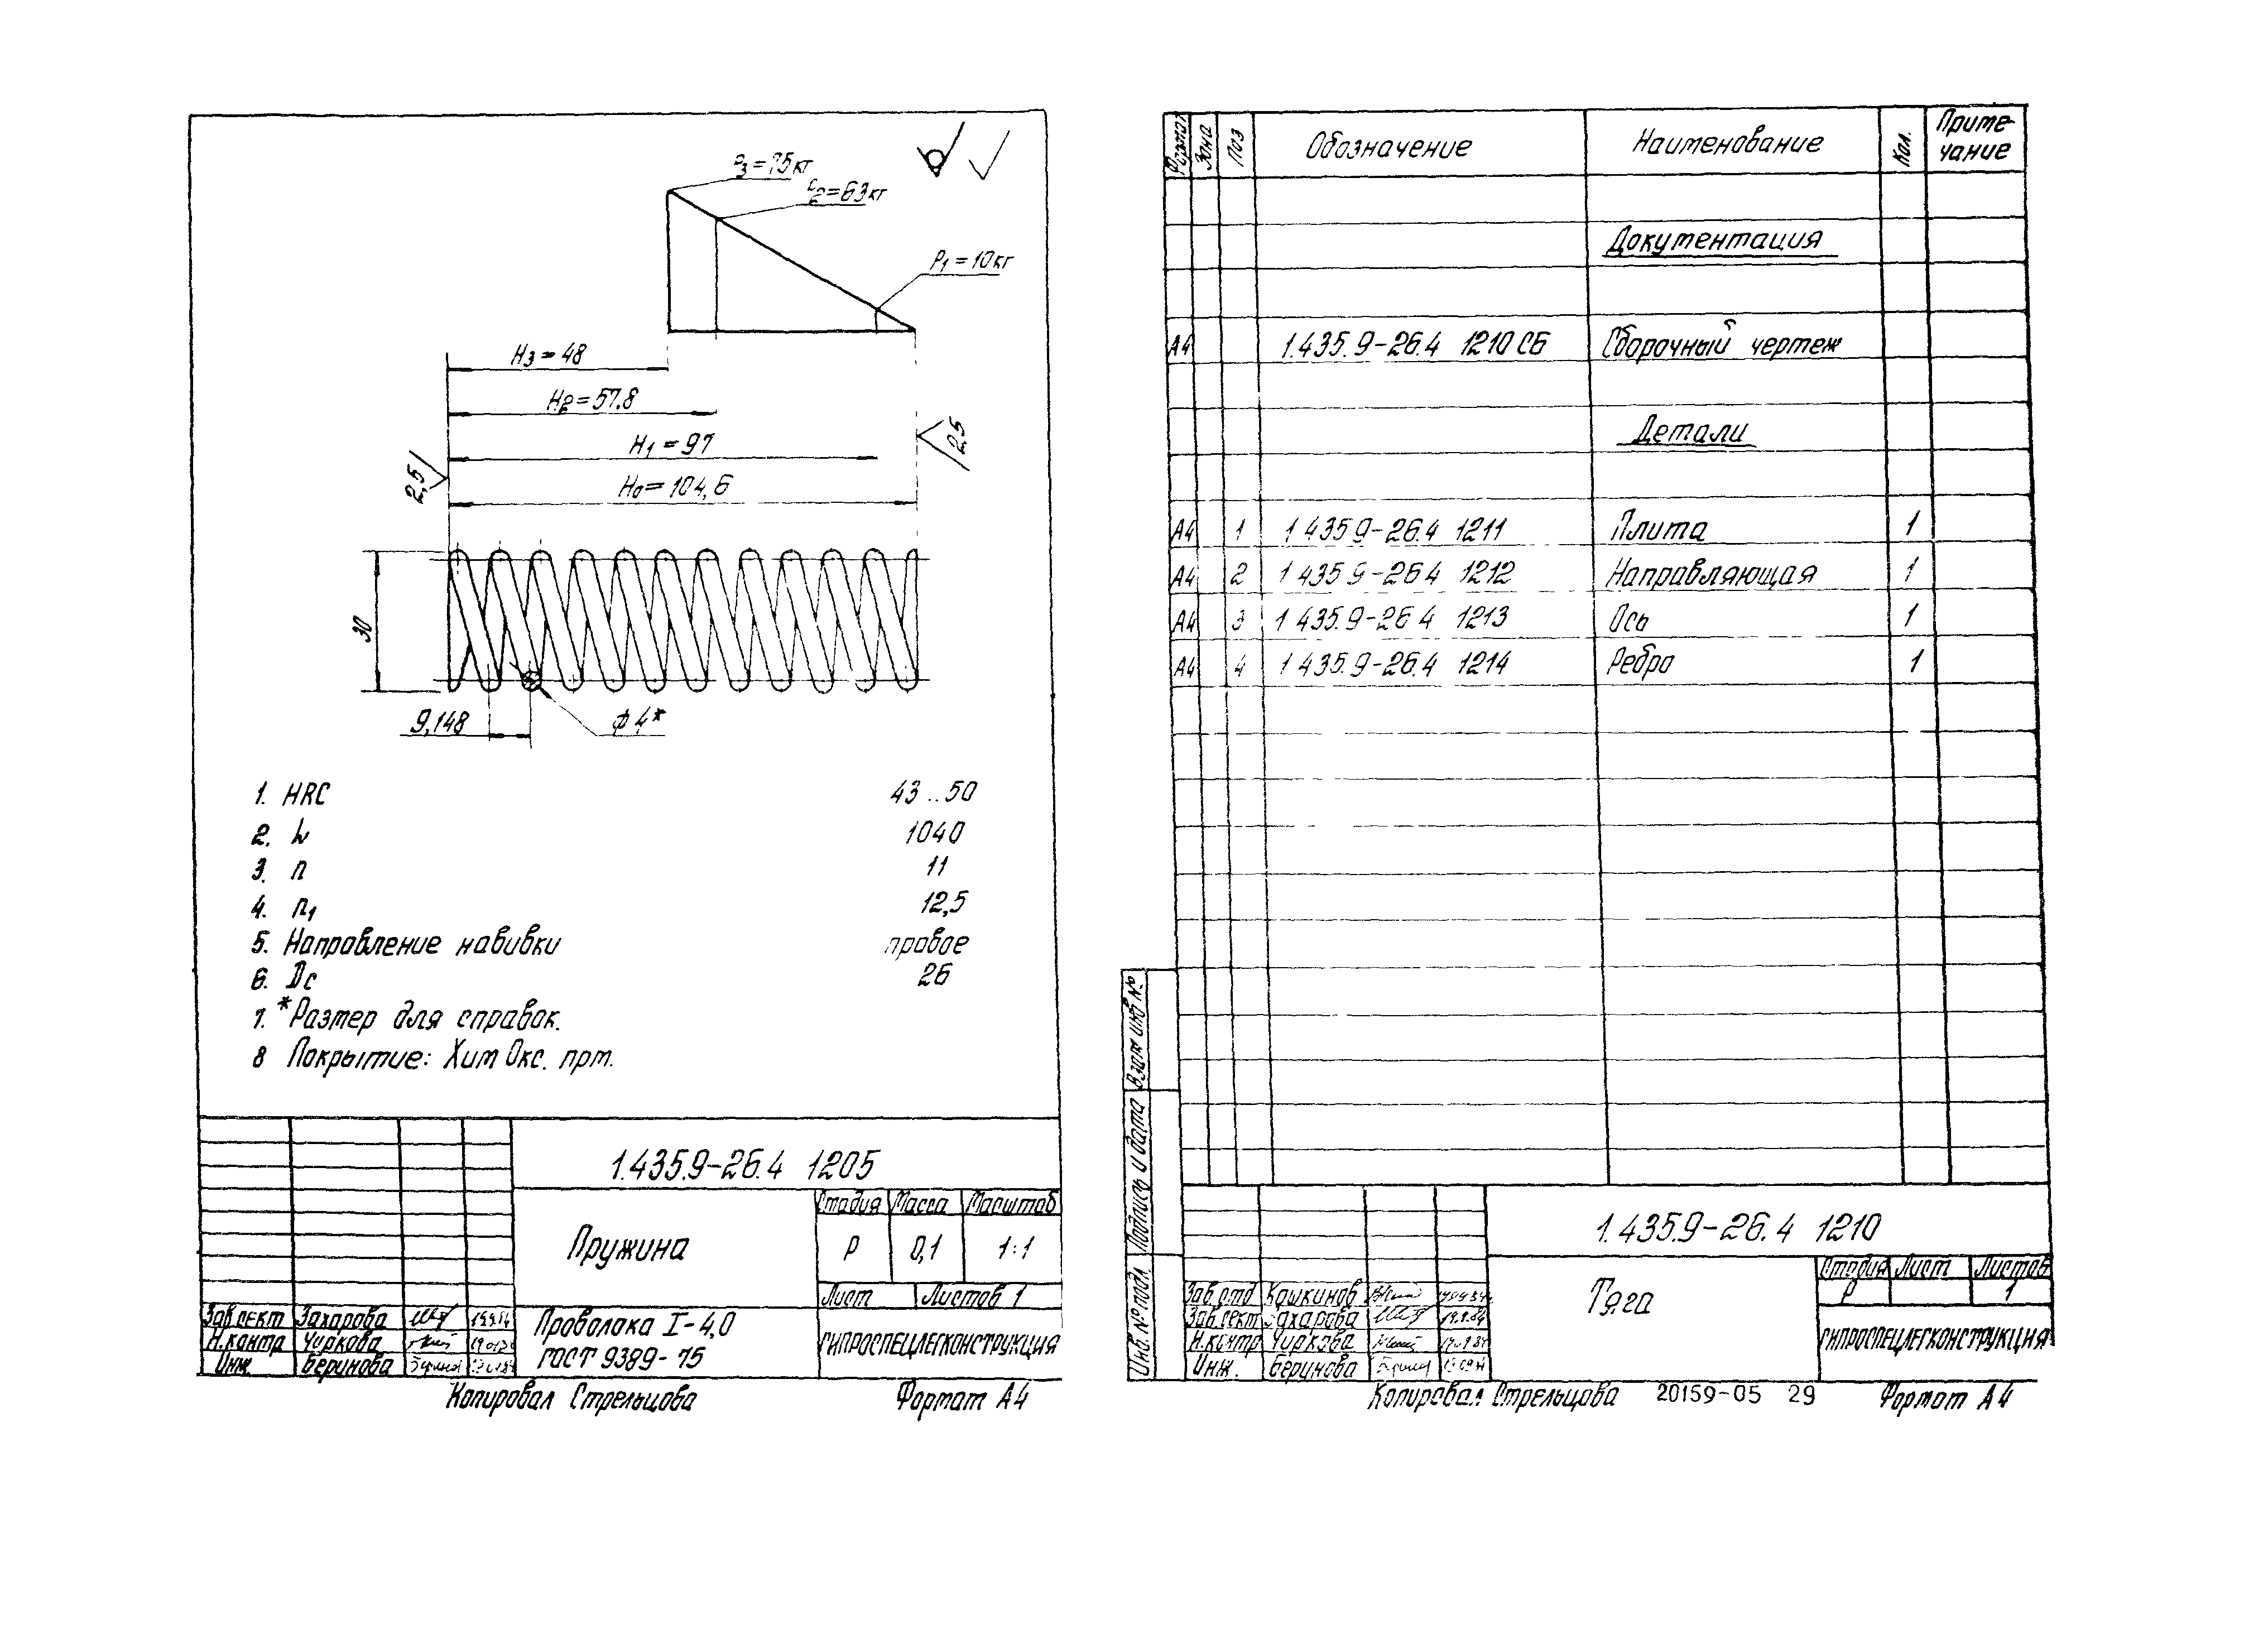 P3 = 75кг
P2 = 63кг
P1 = 10кг
H3 = 48
H2 = 57.8
H1 = 97
H0 = 104,6
2,5
2,5
30
9,148
ф 4*
1. HRC 43..50
2. L 1040
3. n 11
4. n1 12,5
5. Направление навивки правое
6. Dc 26
7. *Размер для справок.
8 Покрытие: Хим Окс. прм.
1.435.9-26.4 1205
Пружина
Стадия Масса Масштаб
Р 0,1 1:1
Лист Листов 1
Зав.сект Захарова
Н.контр Чиркова
Инж. Беринова
Проволока I-4,0
ГОСТ 9389-75
ГИПРОСПЕЦЛЕГКОНСТРУКЦИЯ
Копировал Стрельцова Формат А4
Формат Зона Поз Обозначение Наименование Кол. Приме-
чание
Документация
А4 1.435.9-26.4 1210 СБ Сборочный чертеж
Детали
А4 1 1 435 9-26.4 1211 Плита 1
А4 2 1 435 9-26 4 1212 Направляющая 1
А4 3 1 435.9-26 4 1213 Ось 1
А4 4 1 435.9-26.4 1214 Ребро 1
Взам инв №
Подпись и дата
Инв. № подл.
1.435.9-26.4 1210
Тяга
Стадия Лист Листов
Р 1
Зав.отд Кашкинов
Зав.сект Захарова 19.9.84
Н.контр Чиркова
Инж. Беринова
ГИПРОСПЕЦЛЕГКОНСТРУКЦИЯ
Копировал Стрельцова 20159-05 29 Формат А4